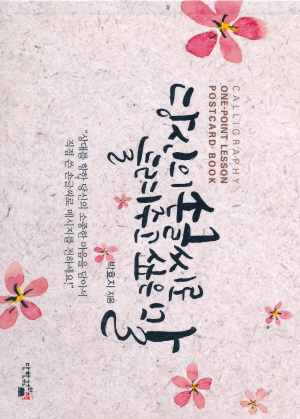 CALLIGRAPHY
ONE-POINT LESSON
POSTCARD BOOK
당신의 손글씨로
들려주고 싶은 말
박효지 지음
"상대를 향한 당신의 소중한 마음을 담아서
직접 쓴 손글씨로 메시지를 전하세요!"